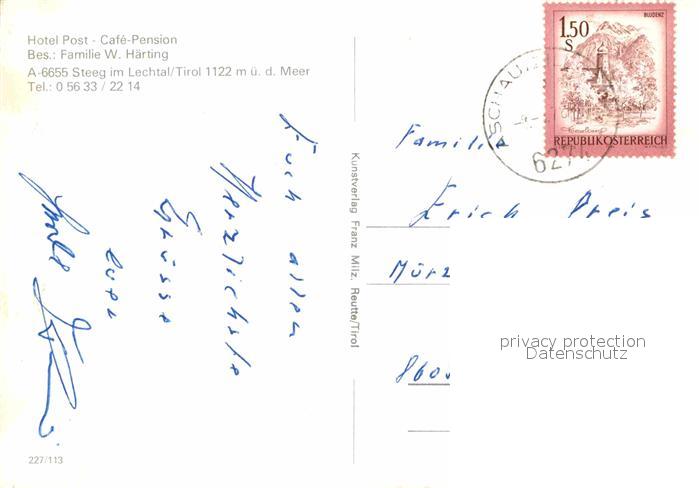 Hotel Post - Café-Pension
Bes.: Familie W. Härting
A-6655 Steeg im Lechtal/Tirol 1122 m ü. d. Meer
Tel.: 0 56 33 / 22 14
Euch allen
Herzlichste
Grüsse
eure
Kunstverlag Franz Milz, Reutte/Tirol
1.50
S
BLUDENZ
REPUBLIK ÖSTERREICH
ASCHAU
6274
Familie
Erich Preis
Mürz
860
privacy protection
Datenschutz
227/113